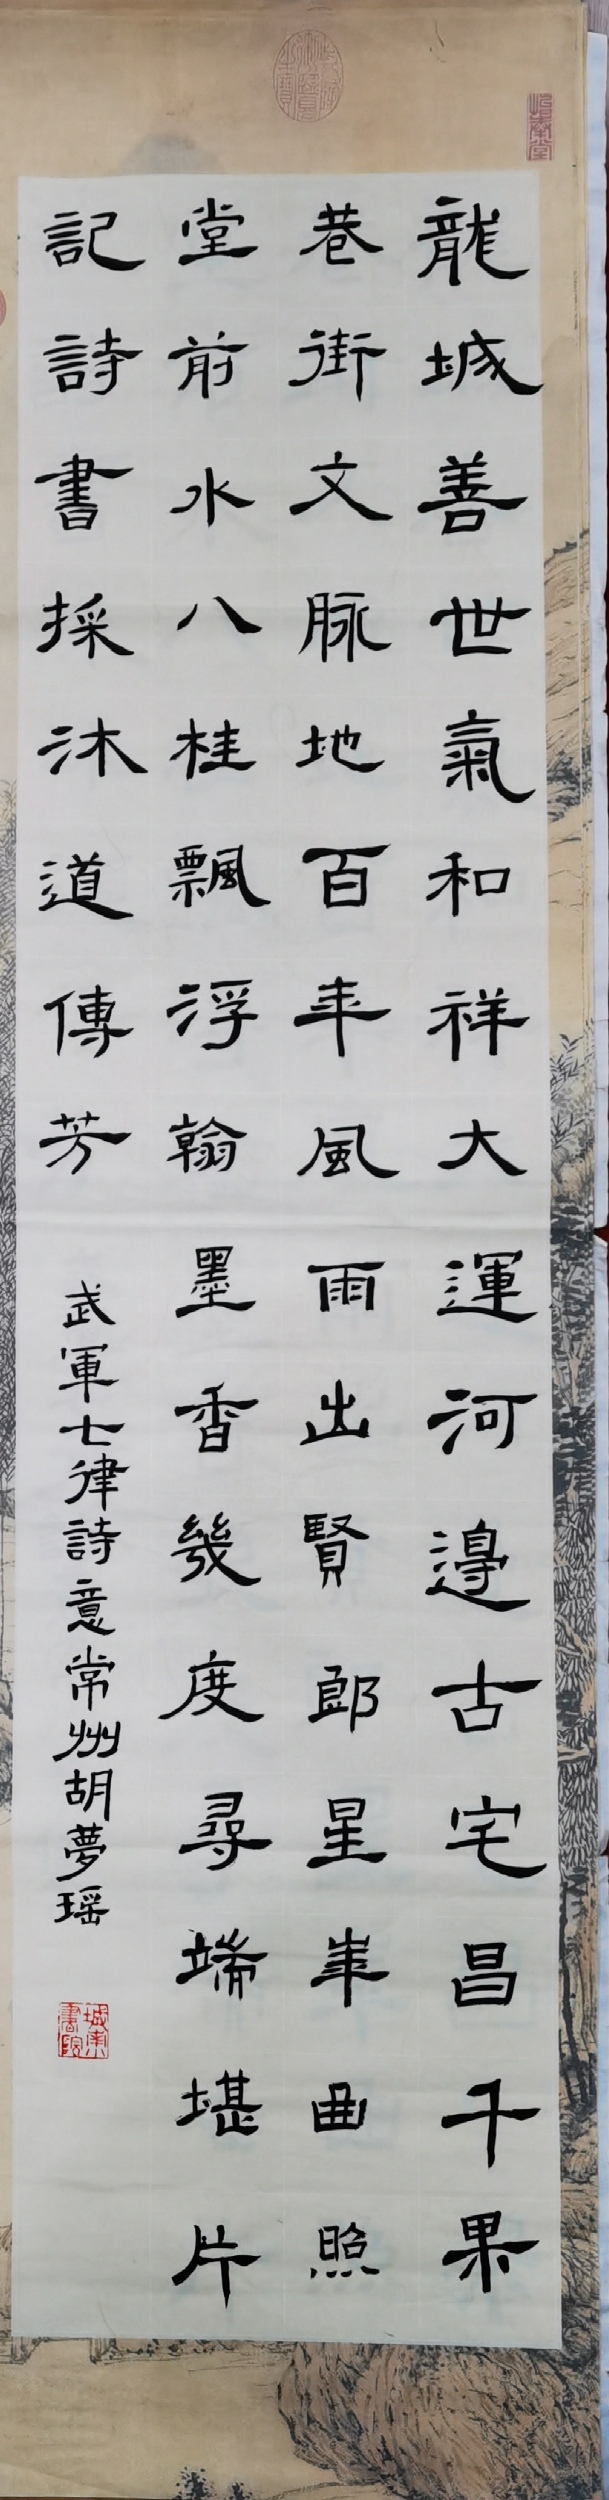 龍城善世氣和祥大運河邊古宅昌千果
巷街文脉地百年風雨出賢郎星年曲照
堂前水八桂飄浮翰墨香幾度尋端堪片
記詩書採沐道傳芳
武軍七律詩意常州胡夢瑶
城南書院